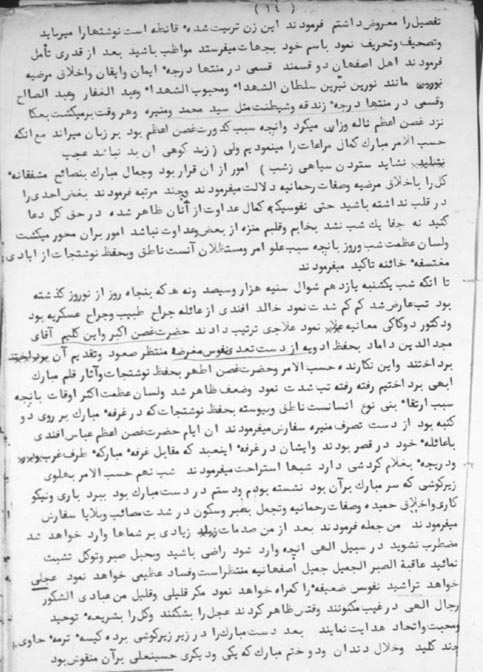 (١٤)
تفصیل را معروض داشتم فرمودند این زن تربیت شده فانطه است نوشتها را میرباید
وتصحیف وتحریف نمود باسم خود بجهات میفرستد مواظب باشید بعد از قدری تأمل
فرمودند اهل اصفهان دو قسمند قسمی در منتها درجه ایمان وایقان واخلاق مرضیه
نورین مانند نورین نیرین سلطان الشهدا ومحبوب الشهدا وعبد الغفار وعبد الصالح
وقسمی در منتها درجه زندقه وشیطنت مثل سید محمد ومنیره وهر وقت برمیگشت بعکا
نزد غصن اعظم ناله وزاری میکرد وانچه سبب کدورت غصن اعظم بود بر زبان میراند مع انکه
حسب الامر مبارک کمال مراعات را مینمودیم ولی (زبد کوهی ان بد نباشد عجب
نشاید ستردن سیاهی زشب) امور از ان قرار بود وجمال مبارک بنصائح مشفقانه
کل را باخلاق مرضیه وصفات رحمانیه دلالت میفرمودند وچند مرتبه فرمودند بغض احدی را
در قلب نداشته باشید حتی نفوسیکه کمال عداوت از آنان ظاهر شده در حق کل دعا
کنید نه جفا یک شب نشد بخوابم وقلبم منزه از بغض وعداوت نباشد امور بران محور میگشت
ولسان عظمت شب وروز بانچه سبب علو امر ومستظلان آنست ناطق وبحفظ نوشتجات از ایادی
مغتسفه خائنه تاکید میفرمودند
تا انکه شب یکشنبه یازدهم شوال سنه هزار وسیصد ونه که پنجاه روز از نوروز گذشته
بود تب عارض شد کم کم شدت نمود خالد افندی از عائله جراح طبیب وجراح عسکریه بود
ودکتور دوکاکی معاینه نمود علاجی ترتیب دادند حضرت غصن اکبر واین کلیم آقای
مجد الدین داماد بحفظ ادویه از دست تعدی نفوس مغرضه منتظر صعود وتقدیم آن
برداختند واین نگارنده حسب الامر وحضرت غصن اطهر بحفظ نوشتجات وآثار قلم مبارک
ابهی برداختیم رفته رفته تب شدت نمود وضعف ظاهر شد ولسان عظمت اکثر اوقات بانچه
سبب ارتقاء بنی نوع انسانست ناطق وپیوسته بحفظ نوشتجات که در غرفه مبارک بر روی دو
کنبه بود از دست تصرف منیره سفارش میفرمودند ان ایام حضرت غصن اعظم عباس افندی
باعائله خود در قصر بودند وایشان در غرفه اینعبد که مقابل غرفه مبارکه طرف غرب
ودریچه بغلام کردشی دارد شبها استراحت میفرمودند شب نهم حسب الامر بهلوی
زیرکوشی که سر مبارک بر آن بود نشسته بودم ودستم در دست مبارک بود ببرد باری ونیکو
کاری واخلاق حمیده وصفات رحمانیه وتجمل بصبر وسکون در شدت مصائب وبلایا سفارش
میفرمودند من جمله فرمودند بعد از من صدمات زیادی بر شماها وارد خواهد شد
مضطرب نشوید در سبیل الهی انچه وارد شود راضی باشید وبحبل صبر وتوکل تشبث
نمائید عاقبة الصبر الجمیل جمیل اصفهانیه منتظر است وفساد عظیمی خواهد نمود عجلی
خواهد تراشید نفوس ضعیفه را گمراه خواهد نمود مگر قلیلی وقلیل من عبادی الشکور
رجال الهی در غیب مکنونند وقتش ظاهر کردند عجل را بشکنند وکل را بشریعه توحید
ومحبت واتحاد هدایت نمایند بعد دست مبارک را در زیر زیرکوشی برده کیسه ترمه حاوی
چند کلید وخلال دندان ودو ختم مبارک که یکی ودیکری حسینعلی بر آن منقوش بود